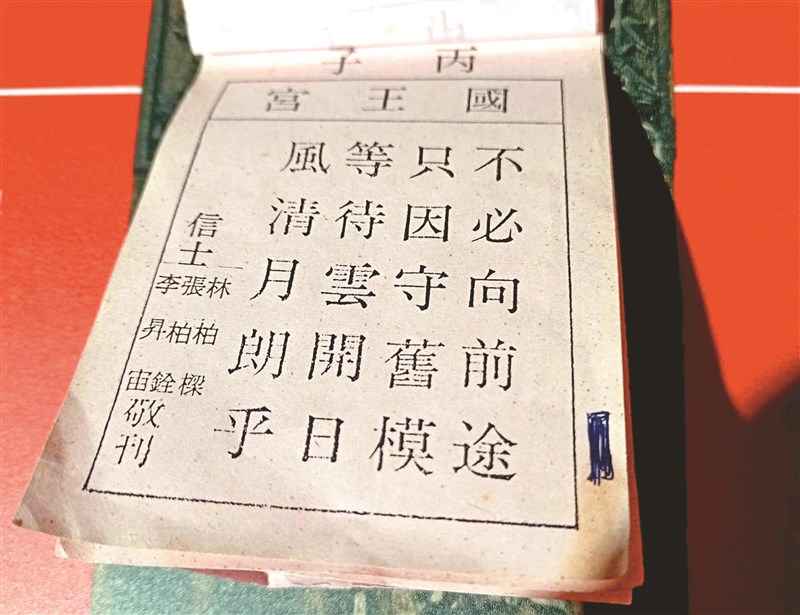 丙子
國王宮
不必向前途
只因守舊模
等待雲開日
風清月朗乎
信士
林柏樑
張柏銓
李昇宙
敬刊